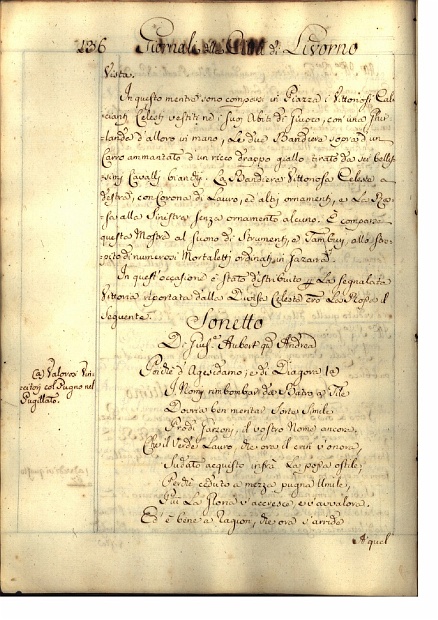 136 Giornale della Città di Livorno
Vista.
In questo mentre sono comparsi in Piazza i Vittoriosi Cal-
cianti Celesti vestiti ne i suoi Abiti di Giuoco, con una Ghir-
landa d'alloro in mano, Le due Bandiere sopra d'un
Carro ammantato d'un ricco drappo giallo tirato da sei bellis-
simi Cavalli bianchi. La Bandiera Vittoriosa Celeste a
destra, con Corona di Lauro, ed altri ornamenti, e La Ro-
sa, alla Sinistra senza ornamento alcuno. E comparsa
questa Mostra al suono di Strumenti, e Tamburi, allo stre-
pito di numerosi Mortaletti ordinati in
In quest'occasione è stato distribuito La segnalata
Vittoria riportata dalla Divisa Celeste La Rosa il
seguente.
Sonetto
De Andrea
Vin-
citori col Pugno nel
Pugillato.
Perchè d'Agesidamo, e di Diagora
I Nomi rimbombar da Battro a Tile
Dovria ben meritar Sorte Simile
Prodi Garzoni, il vostro Nome ancora,
Che il Verde Lauro, che ora il crin v'onora,
Sudato acquisto infra La ostile,
Perchè ceduto a mezza pugna Umile,
Più La Gloria v'accresce, e v'avvalora.
Ed è bene a ragion, che ora s'arride
A quel